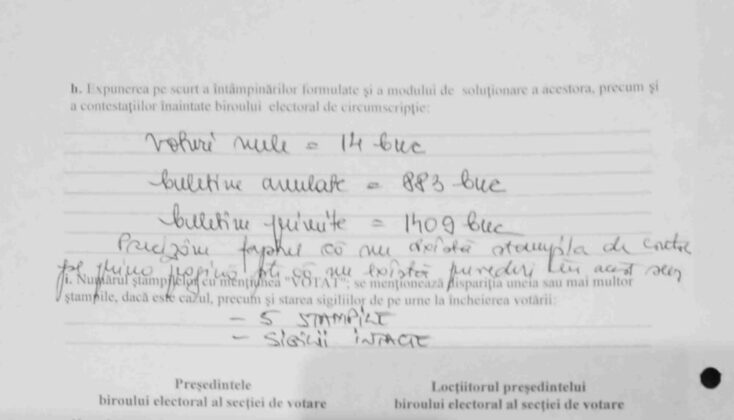 h. Expunerea pe scurt a întâmpinărilor formulate şi a modului de soluţionare a acestora, precum şi
a contestaţiilor înaintate biroului electoral de circumscripţie:
Voturi nule = 14 buc
buletine anulate = 883 buc
buletine primite = 1409 buc
Precizăm faptul că nu există stampila de
pe prima pagină şi că nu există în acest sens
i. Numărul ştampilelor cu menţiunea "VOTAT"; se menţionează dispariţia uneia sau mai multor
ştampile, dacă este cazul, precum şi starea sigiliilor de pe urne la încheierea votării:
- 5 STAMPILE
- SIGILII INTACTE
Preşedintele
biroului electoral al secţiei de votare
Locţiitorul preşedintelui
biroului electoral al secţiei de votare